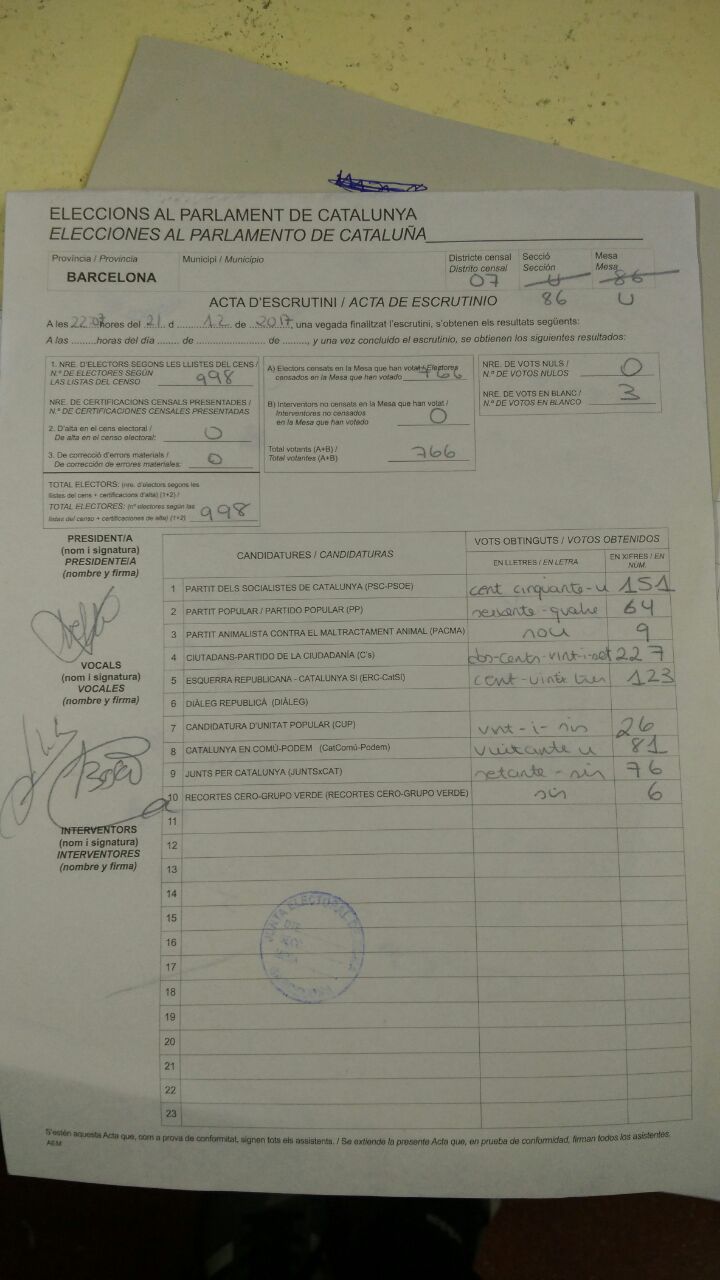 ELECCIONS AL PARLAMENT DE CATALUNYA
ELECCIONES AL PARLAMENTO DE CATALUÑA
Província / Provincia
BARCELONA
Municipi / Municipio
Districte censal
Distrito censal
07
Secció
Sección
U
86
Mesa
Mesa
86
U
ACTA D'ESCRUTINI / ACTA DE ESCRUTINIO
A les 22.07 hores del 21 d 12 de 2017, una vegada finalitzat l'escrutini, s'obtenen els resultats següents:
A las ......... horas del día ....... de .................. de ........, y una vez concluido el escrutinio, se obtienen los siguientes resultados:
1. NRE. D'ELECTORS SEGONS LES LLISTES DEL CENS /
N.º DE ELECTORES SEGÚN
LAS LISTAS DEL CENSO : 998
NRE. DE CERTIFICACIONS CENSALS PRESENTADES /
N.º DE CERTIFICACIONES CENSALES PRESENTADAS
2. D'alta en el cens electoral /
De alta en el censo electoral: 0
3. De correcció d'errors materials /
De corrección de errores materiales: 0
TOTAL ELECTORS: (nre. d'electors segons les
llistes del cens + certificacions d'alta) (1+2) /
TOTAL ELECTORES: (nº electores según las
listas del censo + certificaciones de alta) (1+2) 998
A) Electors censats en la Mesa que han votat / Electores
censados en la Mesa que han votado 766
B) Interventors no censats en la Mesa que han votat /
Interventores no censados
en la Mesa que han votado 0
Total votants (A+B) /
Total votantes (A+B) 766
NRE. DE VOTS NULS /
N.º DE VOTOS NULOS 0
NRE. DE VOTS EN BLANC /
N.º DE VOTOS EN BLANCO 3
PRESIDENT/A
(nom i signatura)
PRESIDENTE/A
(nombre y firma)
VOCALS
(nom i signatura)
VOCALES
(nombre y firma)
INTERVENTORS
(nom i signatura)
INTERVENTORES
(nombre y firma)
CANDIDATURES / CANDIDATURAS
VOTS OBTINGUTS / VOTOS OBTENIDOS
EN LLETRES / EN LETRA
EN XIFRES / EN NUM.
1 PARTIT DELS SOCIALISTES DE CATALUNYA (PSC-PSOE) cent cinquanta-u 151
2 PARTIT POPULAR / PARTIDO POPULAR (PP) seixanta-quatre 64
3 PARTIT ANIMALISTA CONTRA EL MALTRACTAMENT ANIMAL (PACMA) nou 9
4 CIUTADANS-PARTIDO DE LA CIUDADANÍA (C's) dos-cents-vint-i-set 227
5 ESQUERRA REPUBLICANA - CATALUNYA SI (ERC-CatSí) cent-vint tres 123
6 DIÀLEG REPUBLICÀ (DIÀLEG)
7 CANDIDATURA D'UNITAT POPULAR (CUP) vint-i-sis 26
8 CATALUNYA EN COMÚ-PODEM (CatComú-Podem) vuitanta u 81
9 JUNTS PER CATALUNYA (JUNTSxCAT) setanta-sis 76
10 RECORTES CERO-GRUPO VERDE (RECORTES CERO-GRUPO VERDE) sis 6
11
12
13
14
15
16
17
18
19
20
21
22
23
JUNTA ELECTORAL DE
S'estén aquesta Acta que, com a prova de conformitat, signen tots els assistents. / Se extiende la presente Acta que, en prueba de conformidad, firman todos los asistentes.
AEM